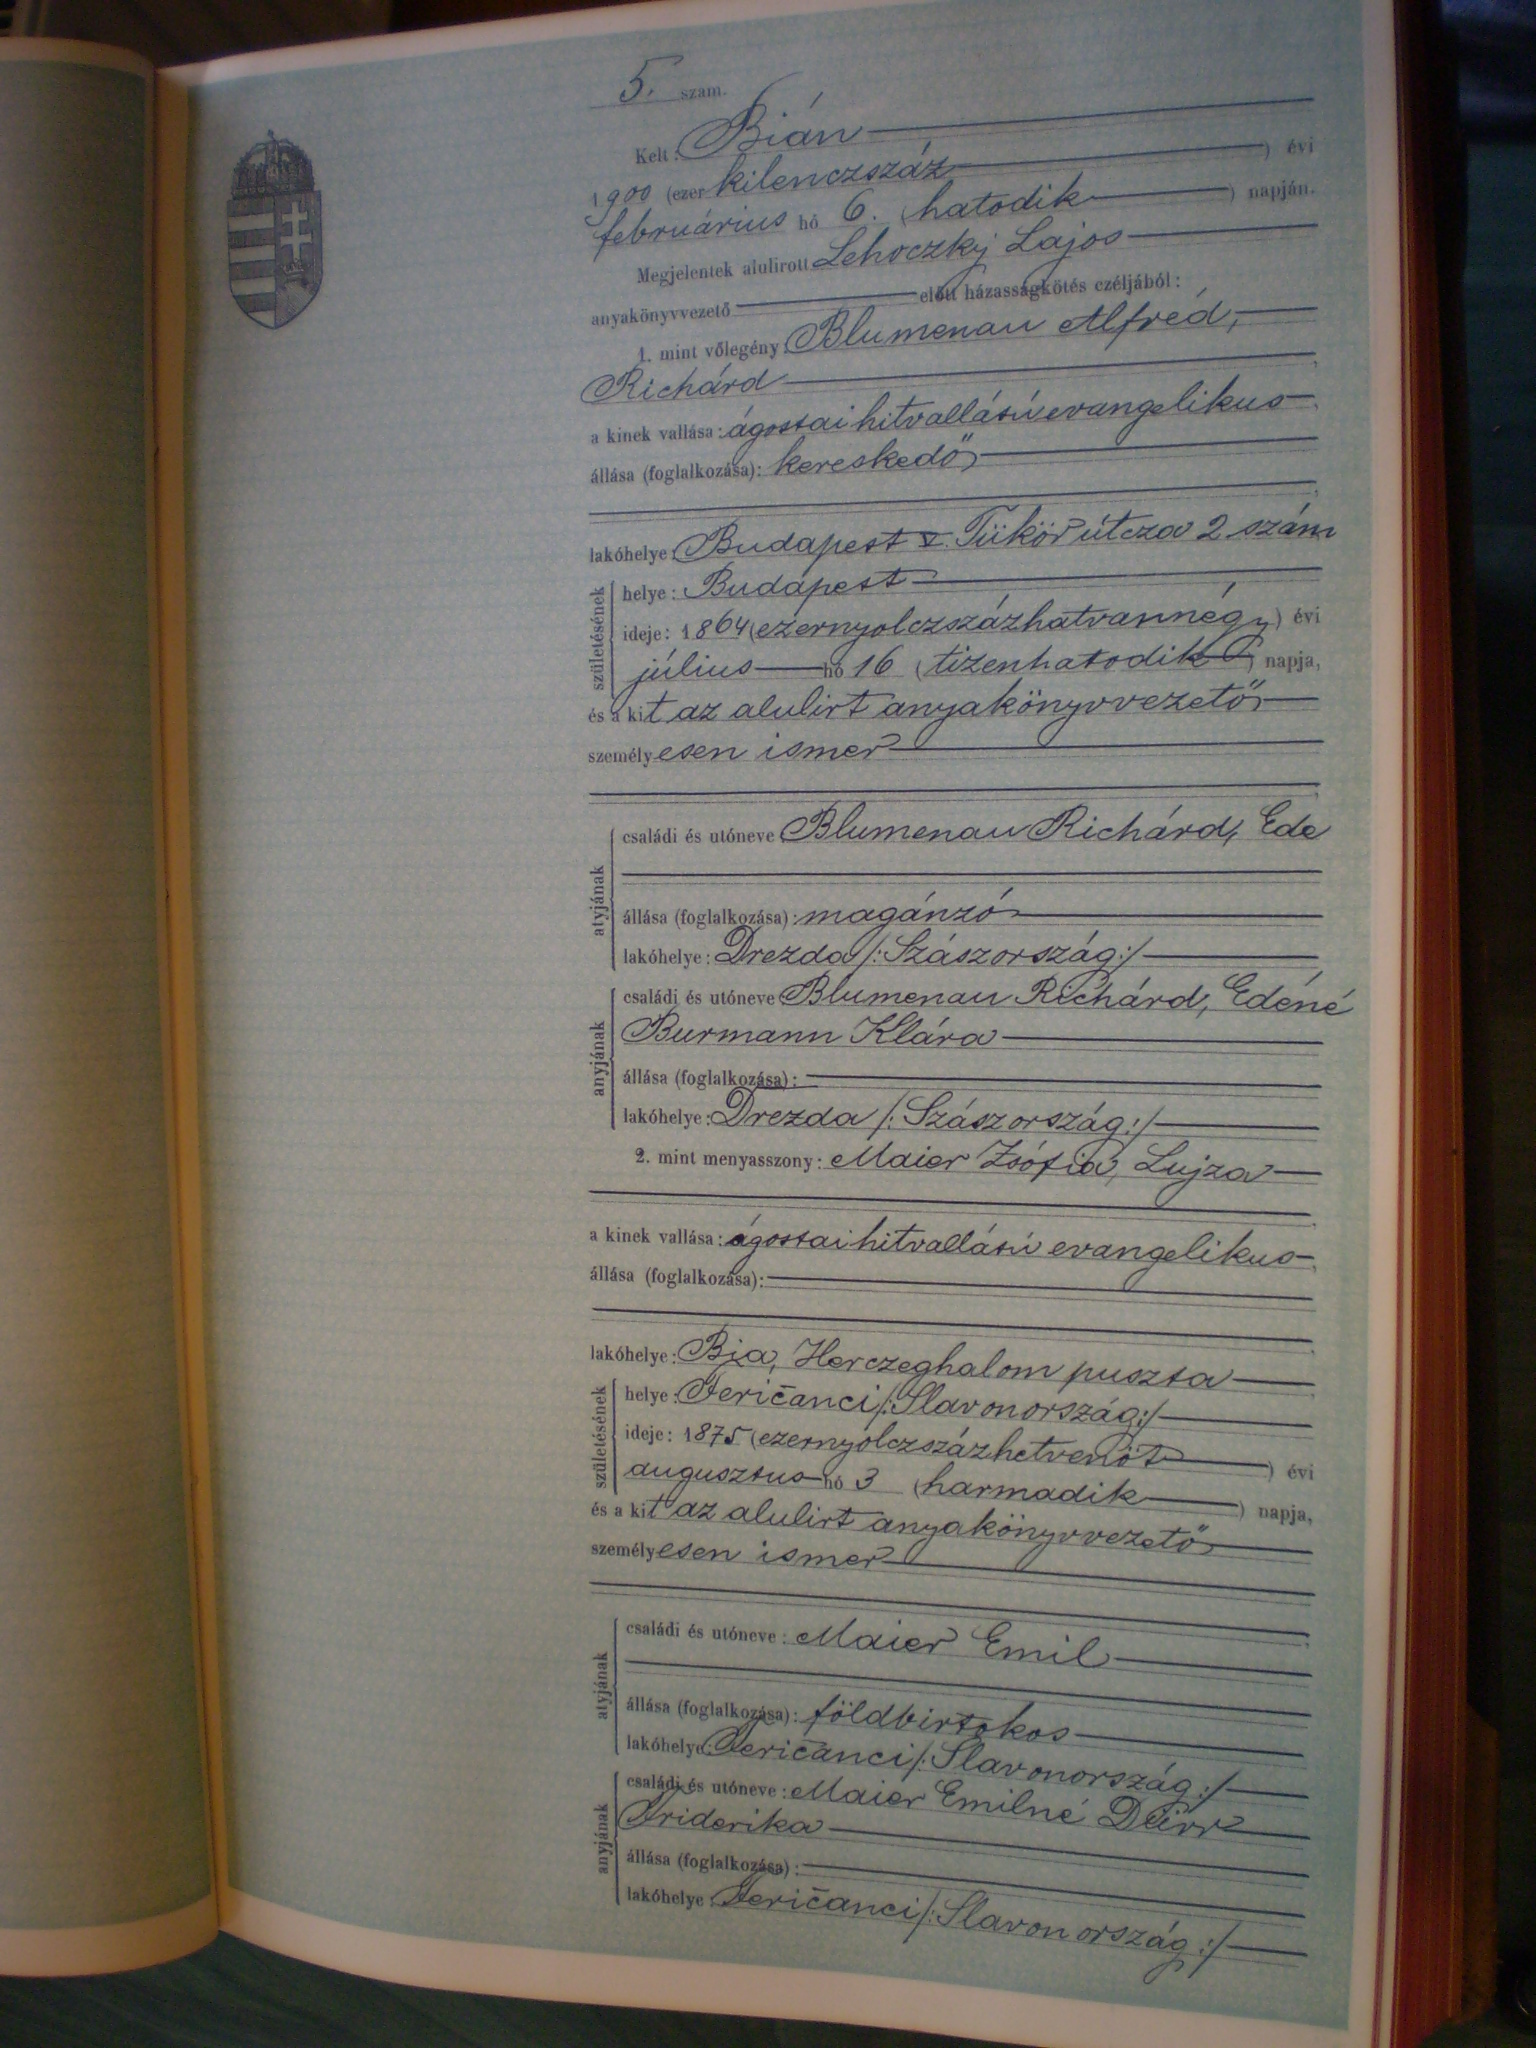 5. szám.
Kelt: Bián
1900 (ezer kilenczszáz ) évi
februárius hó 6. (hatodik ) napján.
Megjelentek alulirott Lehoczky Lajos
anyakönyvvezető előtt házasságkötés czéljából:
1. mint vőlegény: Blumenau Alfréd,
Richárd
a kinek vallása: ágostai hitvallású evangelikus
állása (foglalkozása): kereskedő
lakóhelye: Budapest V. Tükör útcza 2 szám
születésének
helye: Budapest
ideje: 1864 (ezernyolczszázhatvannégy) évi
július hó 16 (tizenhatodik ) napja,
és a kit az alulirt anyakönyvvezető
személyesen ismer
atyjának
családi és utóneve Blumenau Richárd, Ede
állása (foglalkozása): magánzó
lakóhelye: Drezda /: Szászország :/
anyjának
családi és utóneve Blumenau Richárd, Edéné
Burmann Klára
állása (foglalkozása):
lakóhelye: Drezda /: Szászország :/
2. mint menyasszony: Maier Zsófia, Lujza
a kinek vallása: ágostai hitvallású evangelikus
állása (foglalkozása):
lakóhelye: Bia, Herczeghalom puszta
születésének
helye: Feričanci /: Slavonország :/
ideje: 1875 (ezernyolczszázhetvenöt ) évi
augusztus hó 3 (harmadik ) napja,
és a kit az alulirt anyakönyvvezető
személyesen ismer
atyjának
családi és utóneve: Maier Emil
állása (foglalkozása): földbirtokos
lakóhelye: Feričanci /: Slavonország :/
anyjának
családi és utóneve: Maier Emilné Dürr
Friderika
állása (foglalkozása):
lakóhelye: Feričanci /: Slavonország :/